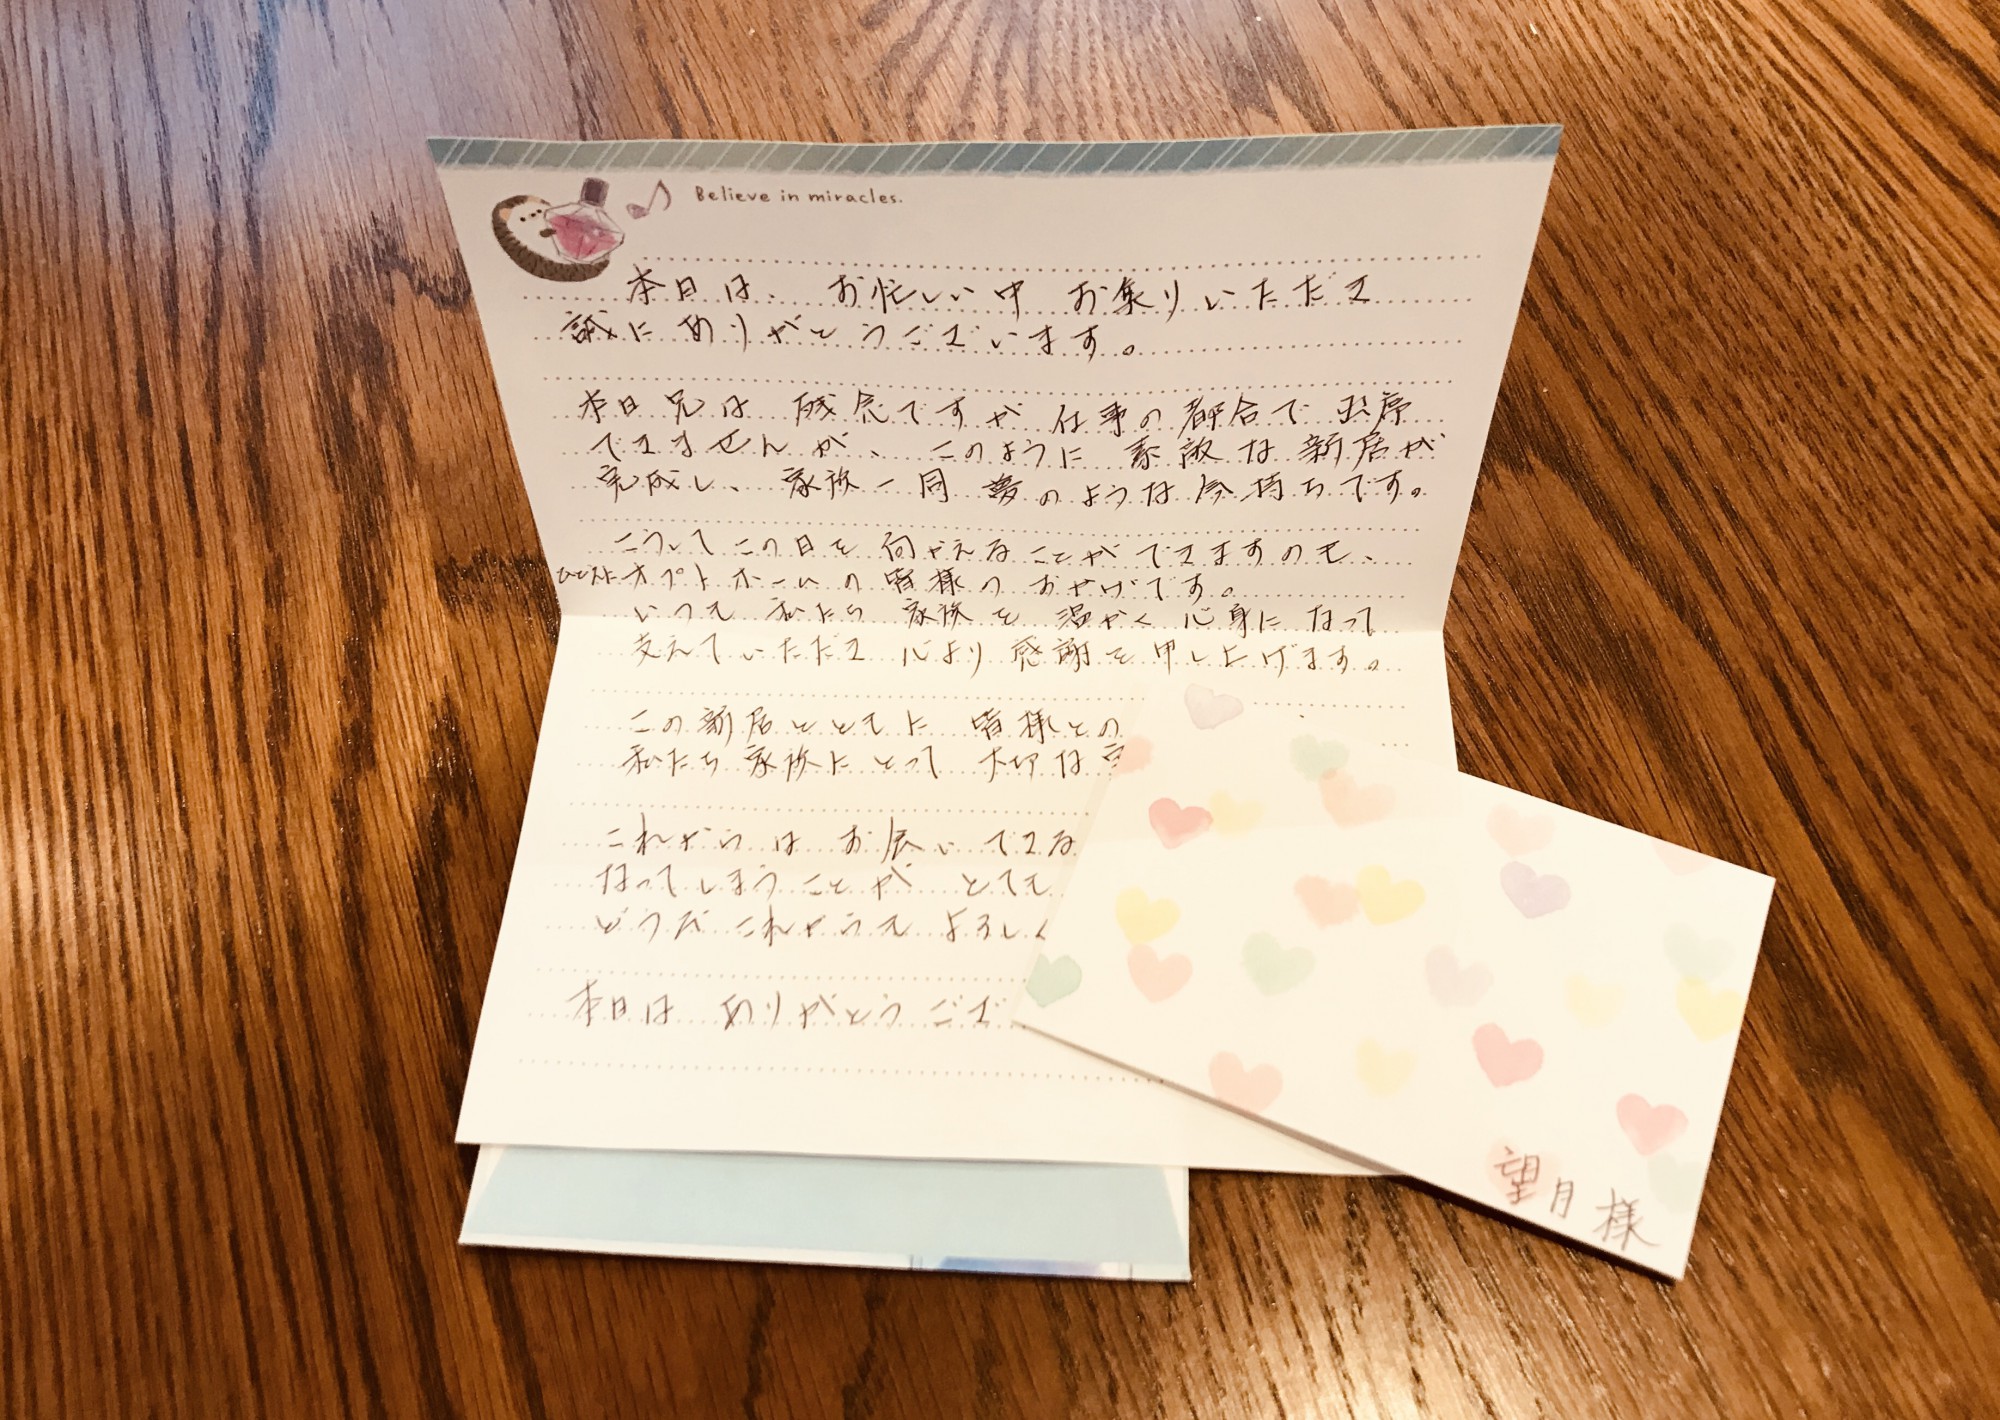 Believe in miracles.
本日は、お忙しい中 お集りいただき
誠にありがとうございます。
本日兄は 残念ですが 仕事の都合で 出席
できませんが、このように 素敵な新居が
完成し、家族一同 夢のような気持ちです。
こうしてこの日を 向かえることができますのも、
ひとえにオプトホームの皆様の おかげです。
いつも 私たち 家族を 温かく 心身になって
支えていただき 心より 感謝を申し上げます。
この新居とともに 皆様との
私たち家族にとって 大切な
これからは お会いできる
なってしまうことが とても
どうぞ これからも よろしく
本日は ありがとうござ
望月様